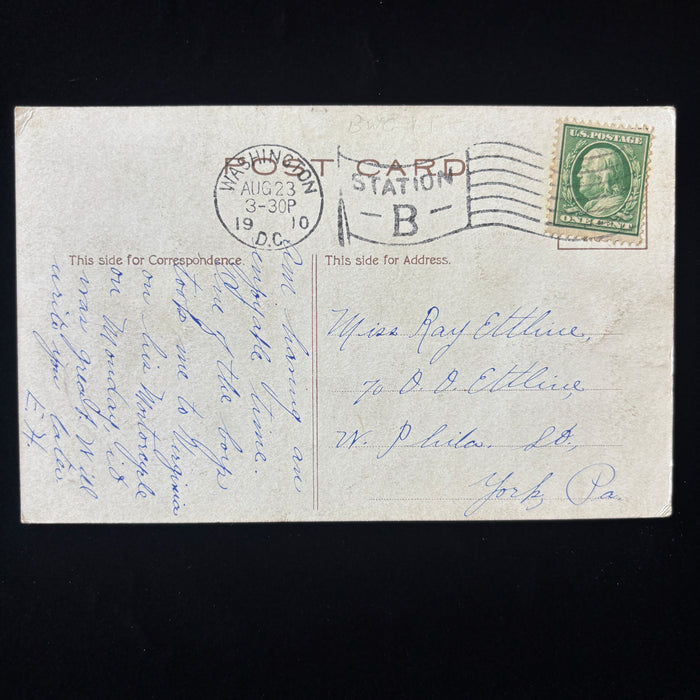 POST CARD
WASHINGTON
AUG 23
3-30P
1910
D.C.
STATION
- B -
U.S. POSTAGE
ONE CENT
This side for Correspondence.
This side for Address.
Am having an
enjoyable time.
One of the boys
took me to Virginia
on his Motorcycle
on Monday, it
was great. Will
write you later
Miss Ray Ettline,
% O. O. Ettline,
W. Phila. St.,
York, Pa.